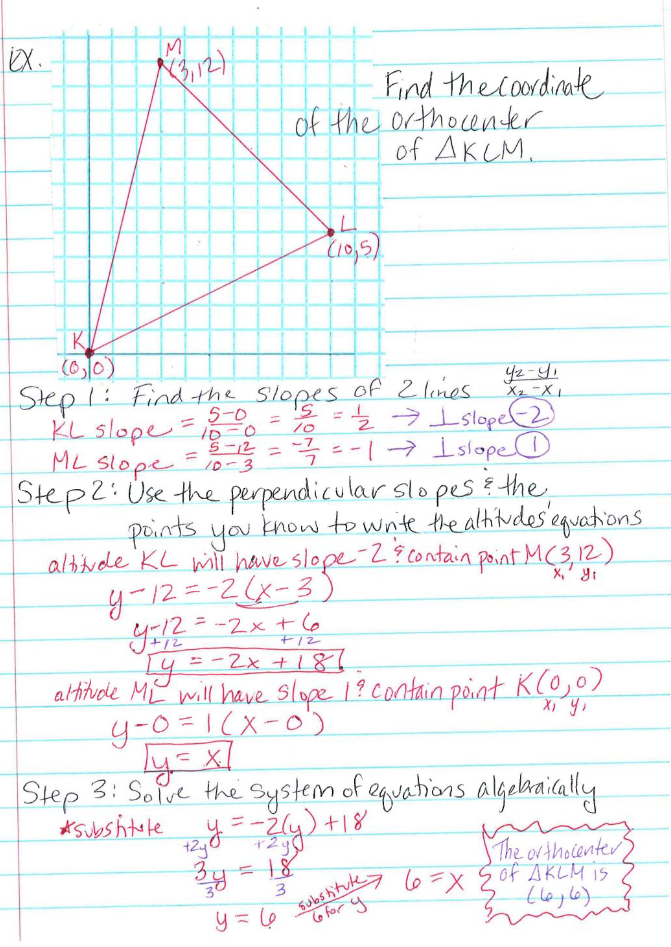 ex.
M
(3,12)
Find the coordinate
of the orthocenter
of △KLM.
L
(10,5)
K
(0,0)
Step 1: Find the slopes of 2 lines y₂-y₁/x₂-x₁
KL slope = 5-0/10-0 = 5/10 = 1/2 → ⊥ slope -2
ML slope = 5-12/10-3 = -7/7 = -1 → ⊥ slope 1
Step 2: Use the perpendicular slopes & the
points you know to write the altitudes' equations
altitude KL will have slope -2 & contain point M(3,12)
x₁ y₁
y-12 = -2(x-3)
y-12 = -2x + 6
+12 +12
y = -2x + 18
altitude ML will have slope 1 & contain point K(0,0)
x₁ y₁
y-0 = 1(x-0)
y = x
Step 3: Solve the system of equations algebraically
*substitute y = -2(y) + 18
+2y +2y
3y = 18
3 3
y = 6 substitute 6 for y → 6 = x
The orthocenter
of △KLM is
(6,6)